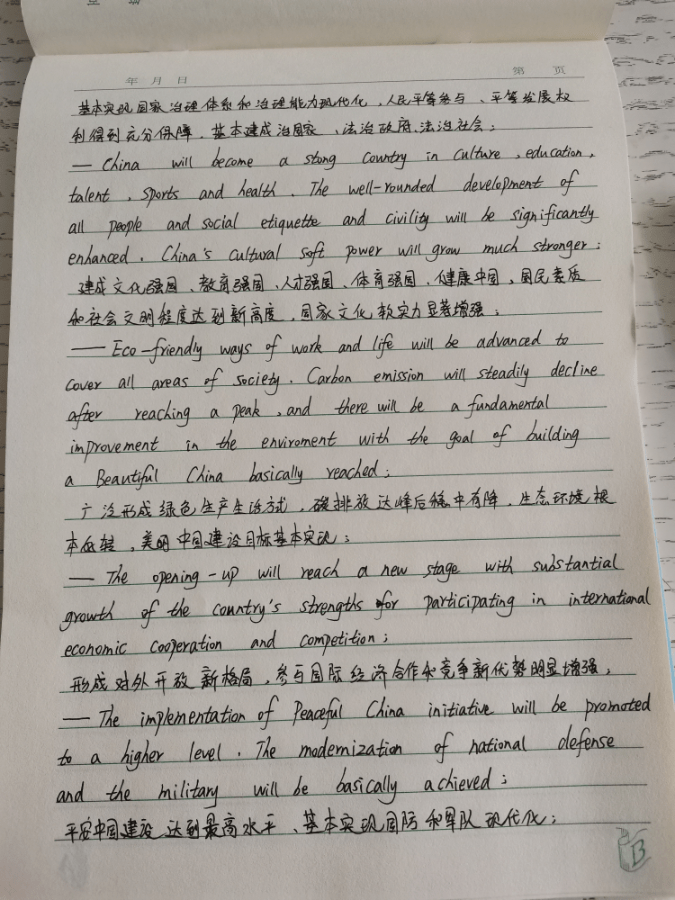 年 月 日 第 页
基本实现国家治理体系和治理能力现代化，人民平等参与、平等发展权
利得到充分保障，基本建成治国家、法治政府、法治社会；
— China will become a stong country in culture, education,
talent, sports and health. The well-rounded development of
all people and social etiquette and civility will be significantly
enhanced. China's cultural soft power will grow much stronger;
建成文化强国、教育强国、人才强国、体育强国、健康中国，国民素质
和社会文明程度达到新高度，国家文化软实力显著增强；
— Eco-friendly ways of work and life will be advanced to
cover all areas of society. Carbon emission will steadily decline
after reaching a peak, and there will be a fundamental
improvement in the enviroment with the goal of building
a Beautiful China basically reached;
广泛形成绿色生产生活方式，碳排放达峰后稳中有降，生态环境根
本好转，美丽中国建设目标基本实现；
— The opening-up will reach a new stage with substantial
growth of the country's strengths for participating in international
economic cooperation and competition;
形成对外开放新格局，参与国际经济合作和竞争新优势明显增强，
— The implementation of Peaceful China initiative will be promoted
to a higher level. The modernization of national defense
and the military will be basically achieved;
平安中国建设达到最高水平、基本实现国防和军队现代化；
B